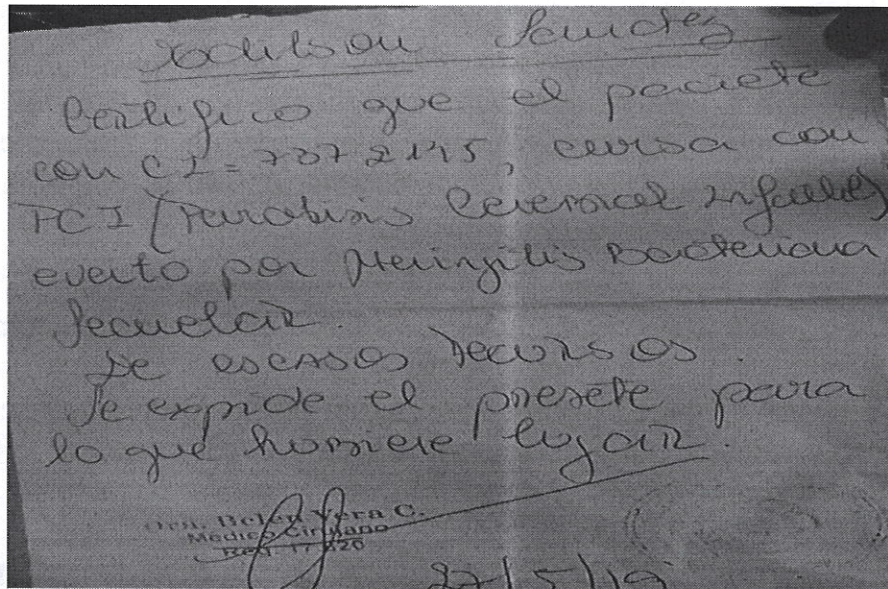 Sanchez
Certifico que el paciete
con CI = 7372145, cursa con
PCI (Paralisis Cerebral Infantil)
evento por Meningitis Bacteriana
Secuelar.
De escasos recursos.
Se expide el presete para
lo que hubiere lugar.
Dra. Belén Vera C.
Médico Cirujano
Reg. 17.820
27/5/19